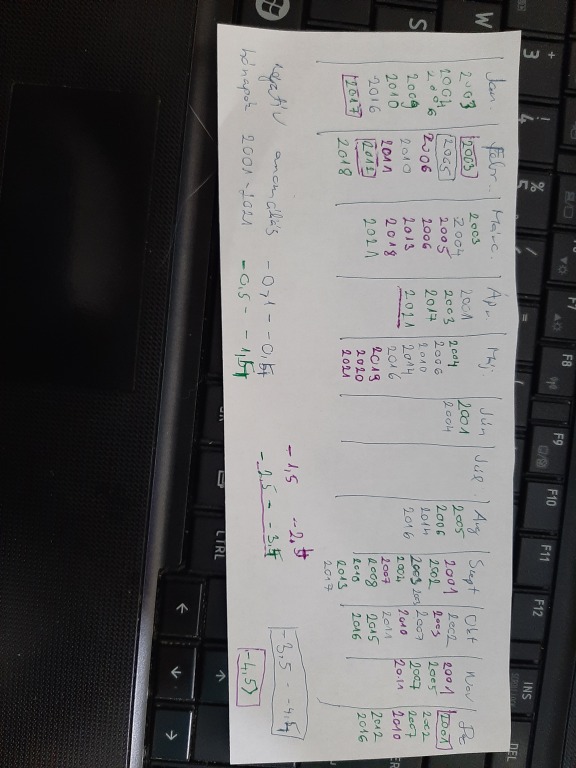 Jan.
2003
2004
2006
2009
2010
2016
2017
Febr.
2003
2005
2006
2010
2011
2012
2018
Marc.
2003
2004
2005
2006
2013
2018
2021
Ápr.
2001
2003
2017
2021
Máj.
2004
2006
2010
2014
2016
2019
2020
2021
Jún
2001
2004
Júl.
Aug
2005
2006
2014
2016
Szept
2001
2002
2003
2004
2007
2008
2010
2013
2017
Okt
2002
2003
2007
2010
2011
2015
2016
Nov
2001
2005
2007
2011
2001
2002
2007
2010
2012
2016
negatív anomáliás
hónapok 2001-2021
-0,1 - -0,5
-0,5 - -1,5
-1,5 -2,5
-2,5 - -3,5
-3,5 - -4,5
-4,5>
W
S
3
4
5
%
F7
F8
F9
F10
F11
F12
INS
DEL
CTRL